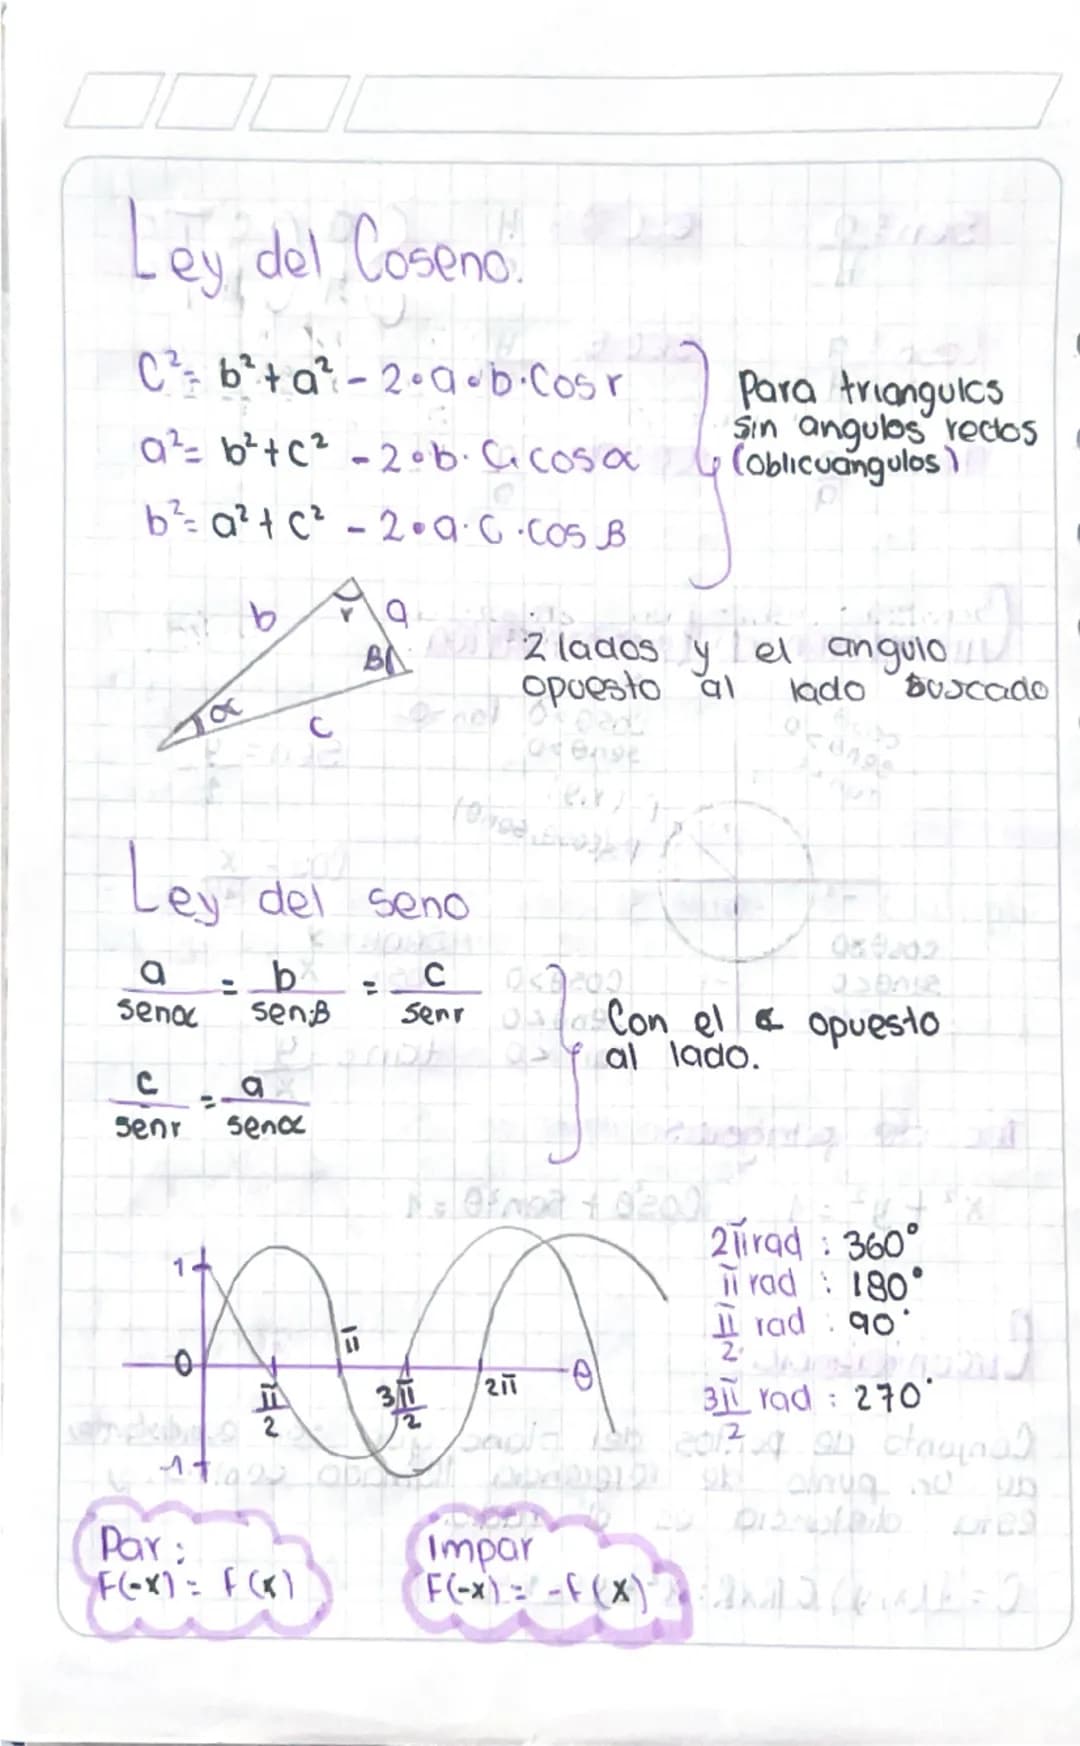 Ley del Coseno.
C² = b² + a² - 2•a•b·Cos r
a² = b² + c² - 2•b·C·cos α
b² = a² + c² - 2•a·C·cos β
Para triangulos
sin angulos rectos
(oblicuangulos)
b
r
a
B
α
c
2 lados y el angulo
opuesto al lado buscado
Ley del seno
a/senα = b/senβ = c/senr
c/senr = a/senα
Con el ∢ opuesto
al lado.
1
0
-1
π/2
π
3π/2
2π
θ
2π rad : 360°
π rad : 180°
π/2 rad : 90°
3π/2 rad : 270°
Par:
F(-x) = F(x)
Impar
F(-x) = -F(x)